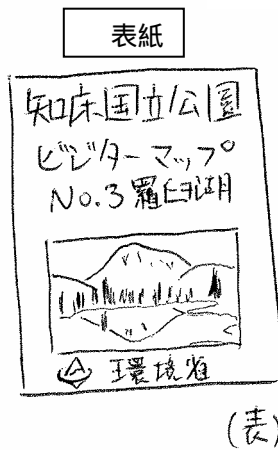 表紙
知床国立公園
ビジターマップ
No.3 羅臼湖
環境省
(表)